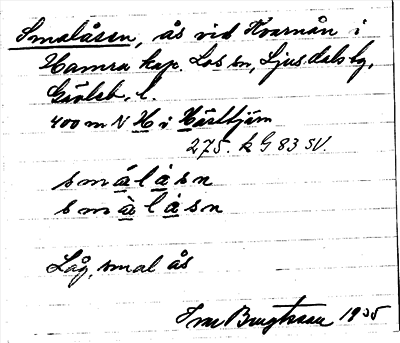 Smalåsen, ås vid Kvarnån i
Hamra kap. Los sn, Ljusdals tg,
Gävleb. l.
400 m N H i Hästtjärn
275. k G 83 SV.
smálåsn
smàlåsn
Låg, smal ås
Bengtsson 1935